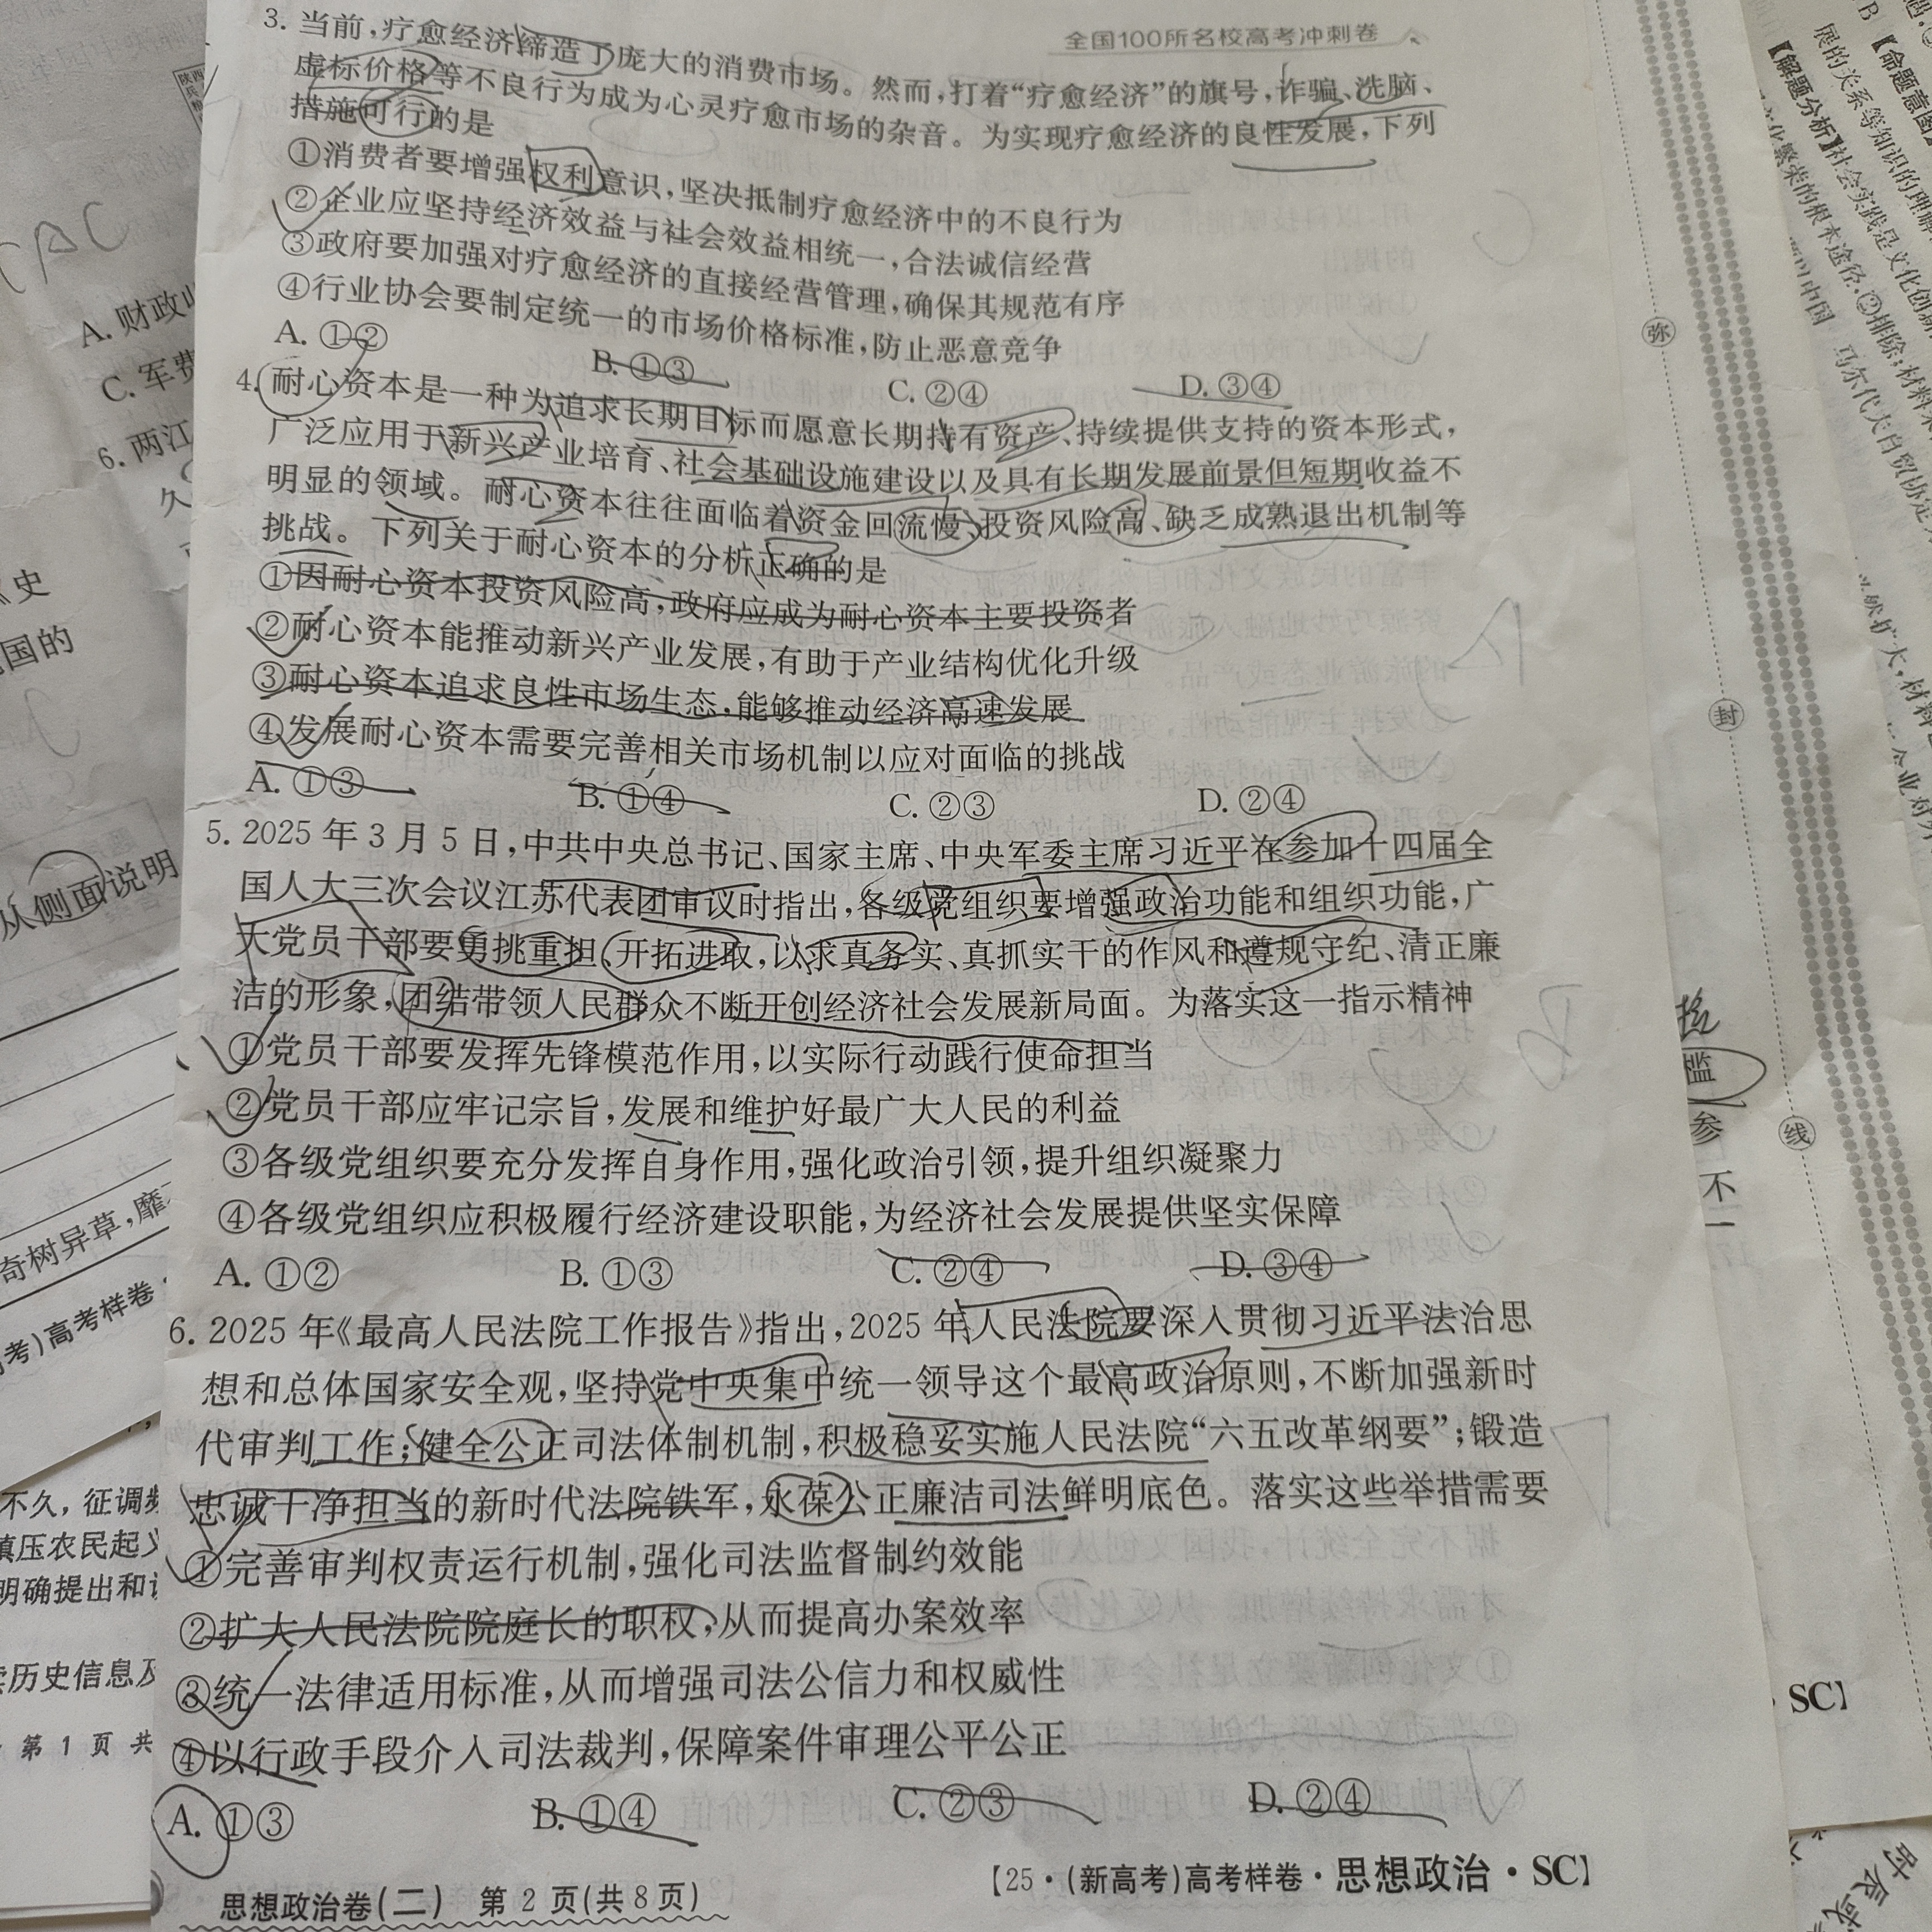 全国100所名校高考冲刺卷
3. 当前,疗愈经济缔造了庞大的消费市场。然而,打着“疗愈经济”的旗号,诈骗、洗脑、
虚标价格等不良行为成为心灵疗愈市场的杂音。为实现疗愈经济的良性发展,下列
措施可行的是
①消费者要增强权利意识,坚决抵制疗愈经济中的不良行为
②企业应坚持经济效益与社会效益相统一,合法诚信经营
③政府要加强对疗愈经济的直接经营管理,确保其规范有序
④行业协会要制定统一的市场价格标准,防止恶意竞争
A. ①② B. ①③ C. ②④ D. ③④
4. 耐心资本是一种为追求长期目标而愿意长期持有资产、持续提供支持的资本形式,
广泛应用于新兴产业培育、社会基础设施建设以及具有长期发展前景但短期收益不
明显的领域。耐心资本往往面临着资金回流慢、投资风险高、缺乏成熟退出机制等
挑战。下列关于耐心资本的分析正确的是
①因耐心资本投资风险高,政府应成为耐心资本主要投资者
②耐心资本能推动新兴产业发展,有助于产业结构优化升级
③耐心资本追求良性市场生态,能够推动经济高速发展
④发展耐心资本需要完善相关市场机制以应对面临的挑战
A. ①③ B. ①④ C. ②③ D. ②④
5. 2025 年 3 月 5 日,中共中央总书记、国家主席、中央军委主席习近平在参加十四届全
国人大三次会议江苏代表团审议时指出,各级党组织要增强政治功能和组织功能,广
大党员干部要勇挑重担、开拓进取,以求真务实、真抓实干的作风和遵规守纪、清正廉
洁的形象,团结带领人民群众不断开创经济社会发展新局面。为落实这一指示精神
①党员干部要发挥先锋模范作用,以实际行动践行使命担当
②党员干部应牢记宗旨,发展和维护好最广大人民的利益
③各级党组织要充分发挥自身作用,强化政治引领,提升组织凝聚力
④各级党组织应积极履行经济建设职能,为经济社会发展提供坚实保障
A. ①② B. ①③ C. ②④ D. ③④
6. 2025 年《最高人民法院工作报告》指出,2025 年人民法院要深入贯彻习近平法治思
想和总体国家安全观,坚持党中央集中统一领导这个最高政治原则,不断加强新时
代审判工作;健全公正司法体制机制,积极稳妥实施人民法院“六五改革纲要”;锻造
忠诚干净担当的新时代法院铁军,永葆公正廉洁司法鲜明底色。落实这些举措需要
①完善审判权责运行机制,强化司法监督制约效能
②扩大人民法院院庭长的职权,从而提高办案效率
③统一法律适用标准,从而增强司法公信力和权威性
④以行政手段介入司法裁判,保障案件审理公平公正
A. ①③ B. ①④ C. ②③ D. ②④
思想政治卷(二) 第 2 页(共 8 页)
【25·(新高考)高考样卷·思想政治·SC】
A. 财政
C. 军费
6. 两江
久
史
国的
从侧面说明
奇树异草,靡
考)高考样卷
不久,征调频
镇压农民起义
明确提出和
历史信息及
第 1 页 共
弥
封
线
滥
参
不
一
SC】
【命题意图】
【解题分析】社会实践是文化创新
展的关系等知识的理解
文化繁荣的根本途径,②排除;材料